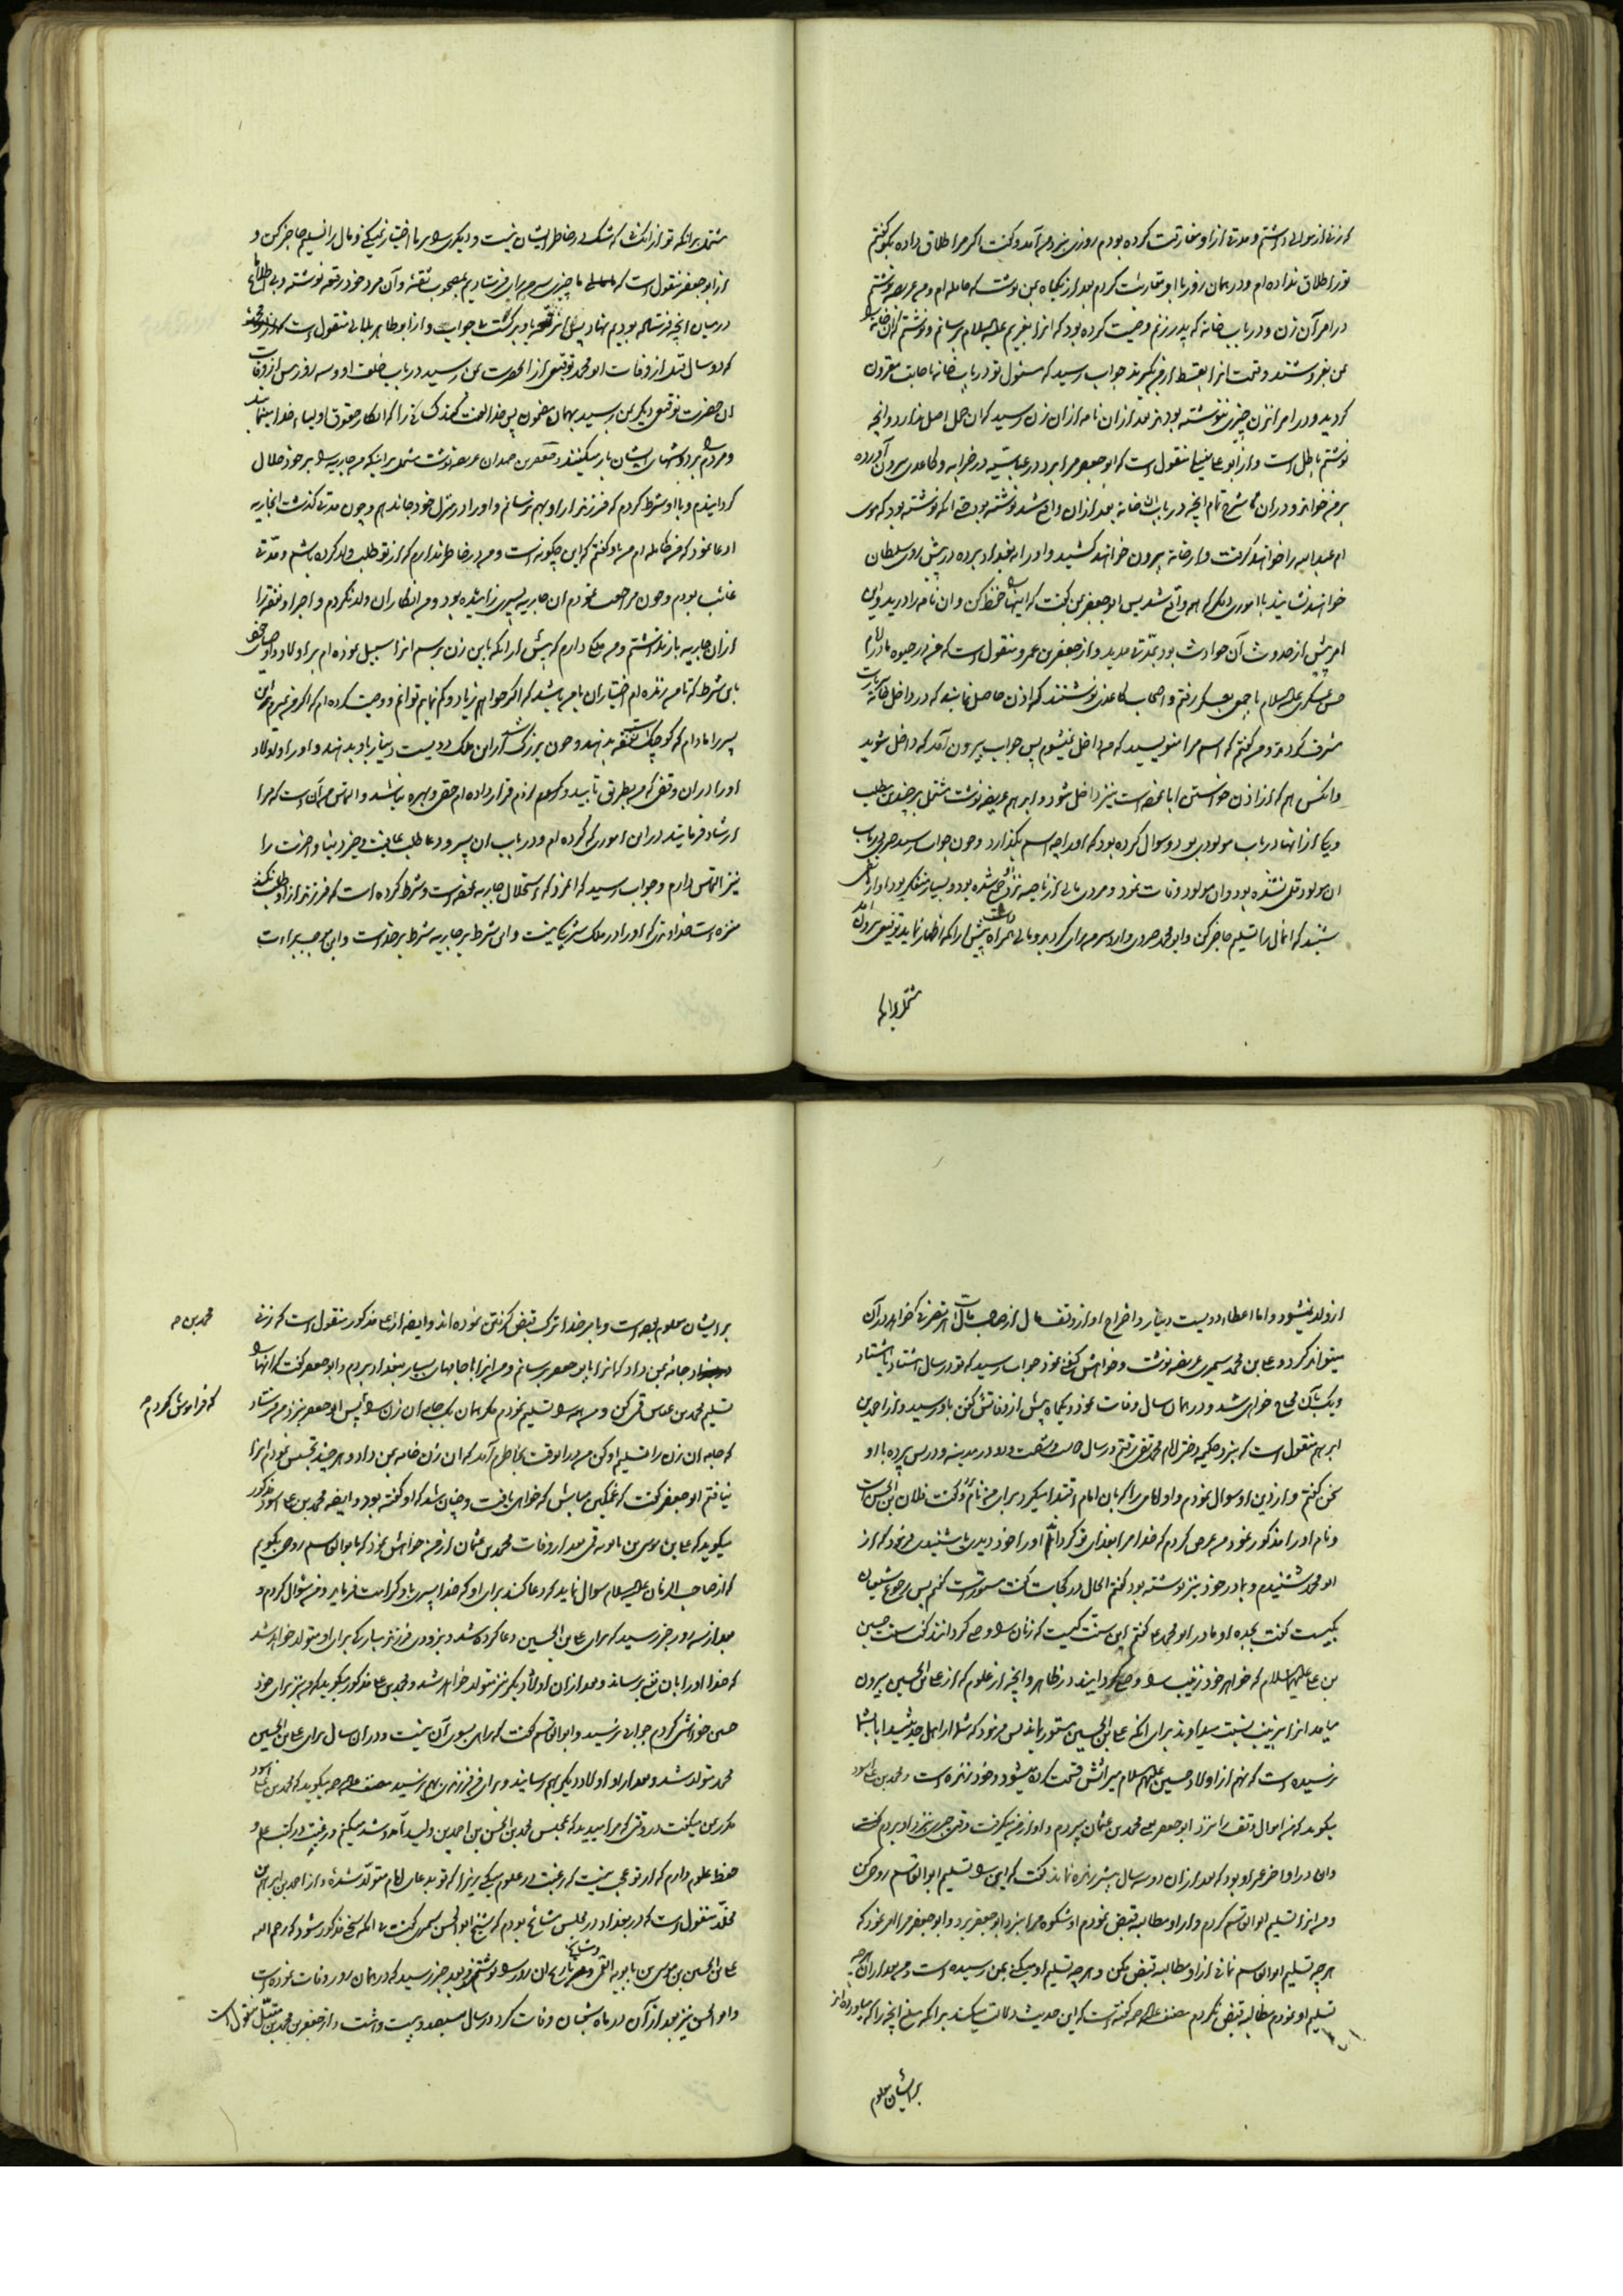 که زنی از موالی داشتم و مدتی از او مفارقت کرده بودم روزی نزد من آمد و گفت اگر مرا طلاق داده بگو گفتم
تو را طلاق نداده ام و در همان روز با او مقاربت کردم بعد از یکماه بمن نوشت که حامله ام و من عریضه نوشتم
در امر آن زن و در باب خانه که پدر زنم وصیت کرده بود که آنرا بغریم علیه السلام برسانم و نوشتم که آن خانه را
بمن بفروشند و قیمت آنرا بقسط از من بگیرند جواب رسید که مسئول تو در باب خانه باجابت مقرون
گردید و در امر آن زن چیزی ننوشته بودند بعد از آن نامه از آن زن رسید که آن حمل اصل ندارد و آنچه
نوشتم باطل است و از ابو علی منقول است که ابو جعفر مرا برد در عباسیه در خرابه و کاغذی بیرون آورده
بر من خواند و در آن شرح تمام آنچه در باب خانه بعد از آن واقع شد نوشته بود حتی آنکه نوشته بود که موی
ام عبدالله را خواهند گرفت و از خانه بیرون خواهند کشید و او را ببغداد برده در پیش روی سلطان
خواهند نشانید با اموری دیگر که همه واقع شد پس ابو جعفر بمن گفت که اینها را حفظ کن و آن نامه را درید و این
امر پیش از حدوث آن حوادث بود بمدتی مدید و از جعفر بن عمرو منقول است که من در حیوه مادر امام
حسن عسکری علیه السلام با جمعی بعسکر رفتم و اصحاب کاغذی نوشتند که اذن حاصل نمایند که در داخل بزیارت
مشرف گردند و من گفتم که اسم مرا ننویسید که من داخل نمیشوم پس جواب بیرون آمد که داخل شوید
و آنکس هم که از اذن خواستن ابا نموده است نیز داخل شود و ابراهیم عریضه نوشت مشتمل بر چند مطلب
و یکی از آنها در باب مولودی بود و سوال کرده بود که او را چه اسم بگذارد و چون جواب رسید حرفی در باب
آن مولود قلمی نشده بود و آن مولود وفات نمود و مردی مالی از ناحیه نزد او جمع شده بود و بسیار متفکر بود
شنید که آنمال را تسلیم حاجز کن و ابو محمد وارد سرمن رای گردید و مالی همراه داشت پیش از آنکه اظهار نماید توقیعی بیرون آمد
مشتمل بر آنکه
مشتمل بر آنکه تو از آنکسان که شک در خاطر ایشان نیست و دیگری را بر ما اختیار نمیکنی و مال را تسلیم حاجز کن و
از ابو جعفر منقول است که ما چیزی بسرمن رای فرستادیم بمصحوب ثقه و آن مرد خود رقعه نوشته و بی اطلاع ما
در میان آنچه فرستاده بودیم نهاد پس آن رقعه باو برگشت بی جواب و از ابو طاهر بلالی منقول است
که دو سال قبل از وفات ابو محمد توقیعی از آنحضرت بمن رسید در باب خلف او و سه روز پس از وفات
آن حضرت توقیعی دیگر بمن رسید بهمان مضمون پس خدا لعنت کند کسانی را که انکار حقوق اولیاء خدا مینمایند
و مردم را بر دوشهای ایشان بار میکنند و جعفر بن حمدان عریضه نوشت مشتمل بر اینکه من جاریه را بر خود حلال
گردانیدم و با او شرط کردم که فرزند از او بهم نرسانم و او را در منزل خود جا ندهم و چون مدتی گذشت آنجاریه
ادعا نمود که من حامله ام من باو گفتم که این چگونه است و من در خاطر ندارم که از تو طلب ولد کرده باشم و مدتی
غائب بودم و چون مراجعت نمودم آن جاریه پسری زائیده بود و من انکار آن ولد نکردم و اجرا و نفقه را
از آن جاریه باز نداشتم و من ملکی دارم که پیش از آنکه باین زن برسم آنرا سبیل نموده ام بر اولاد و اوصیای خود
باین شرط که تا من زنده ام اختیار آن با من باشد که اگر خواهم زیاد و کم نمایم توانم و وصیت کرده ام که اگر من بمیرم این
پسر را مادام که کوچک است نفقه بدهند و چون بزرگ شد از این ملک دویست دینار باو بدهند و او را و اولاد
او را در آن وقفی که من بطریق تأیید قرار داده ام حقی و بهره نباشد و التماس من آن است که مرا
ارشاد فرمائید در این اموری که کرده ام و در باب آن پسر و دعا طلب عافیت و خیر دنیا و آخرت را
نیز التماس دارم و جواب رسید که آنمرد که استحلال جاریه نموده است و شرط کرده است که فرزند از او طلب نکند
منزه است خداوندی که او را در ملک شریک نیست و این شرط بر جاریه شرط بر خداست و این موجب براءت
از ولد نمیشود و اما اعطاء دویست دینار و اخراج او از وقف مال از صاحب مال است هر تصرفی که خواهد در آن
میتواند کرد و علی بن محمد سیمری عریضه نوشت و خواهش کفن نمود جواب رسید که تو در سال هشتاد یا هشتاد
و یک بآن محتاج خواهی شد و در همان سال وفات نمود و یکماه پیش از وفاتش کفن باو رسید و از احمد بن
ابراهیم منقول است که بنزد حکیمه دختر امام محمد تقی رفتم در سال دویست و شصت و دو در مدینه و در پس پرده با او
سخن گفتم و از دین او سوال نمودم و او امامی را که بآن امام اقتدا میکرد برای من نام برد و گفت فلان بن الحسن است
و نام او را مذکور نمود من عرض کردم که خدا مرا بفدای تو گرداند او را خود دیدی یا شنیدی فرمود که از
ابو محمد شنیدم و بمادر خود نیز نوشته بود گفتم الحال در کجاست گفت مستور است گفتم پس رجوع شیعیان
بکیست گفت بجده او مادر ابو محمد گفتم این سنت کیست که زنان را وصی گردانند گفت سنت حسین
بن علی علیهما السلام که خواهر خود زینب را وصی گردانید در ظاهر و آنچه از علوم که از علی بن الحسین بیرون
میآمد آنرا بزینب نسبت میدادند برای آنکه علی بن الحسین مستور بماند پس فرمود که شما از اهل حدیثید آیا بشما
نرسیده است که نهم از اولاد حسین علیه السلام میراثش قسمت کرده میشود و خود زنده است و محمد بن علی اسود
میگوید که من اموال وقف را نزد ابو جعفر محمد بن عثمان میبردم و او از من میگرفت وقتی چیزی نزد او بردم گفت
و آن در اواخر عمر او بود که بعد از آن دو سه سال بیشتر زنده نماند گفت که این را تسلیم ابو القاسم روحی کن
و من آنرا تسلیم ابو القاسم کردم و از او مطالبه قبض نمودم او شکوه مرا بنزد ابو جعفر برد و ابو جعفر مرا امر نمود که
هر چه تسلیم ابو القاسم نمائی از او مطالبه قبض مکن و هر چه تسلیم او میکنی بمن رسیده است و من بعد از آن هر چه
تسلیم او نمودم مطالبه قبض نکردم مصنف علیه الرحمه گفته است که این حدیث دلالت میکند بر آنکه مبلغ آنچه را که میآورده اند
بر ایشان معلوم
بر ایشان معلوم بوده است و بامر خدا ترک قبض گرفتن نموده اند و ایضا از علی مذکور منقول است که زنی
جامه بمن داد که آنرا بابو جعفر برسانم و من آنرا با جامهای بسیار ببغداد بردم و ابو جعفر گفت که آنها را
تسلیم محمد بن عباس قمی کن و من همه را تسلیم نمودم مگر همان یک جامه آن زن را پس ابو جعفر نزد من فرستاد
که جامه آن زن را تسلیم او کن من در آنوقت بخاطرم آمد که آن زن جامه بمن داد و هر چند تجسس نمودم آنرا
نیافتم ابو جعفر گفت که غمگین مباش که خواهی یافت و چنان شد که او گفته بود و ایضا محمد بن علی اسود مذکور
میگوید که علی بن موسی بن بابویه قمی بعد از وفات محمد بن عثمان از من خواهش نمود که بابو القاسم روحی بگویم
که از صاحب الزمان علیه السلام سوال نماید که دعا کند برای او که خدا پسری باو کرامت فرماید و من سؤال کردم و
بعد از سه روز خبر رسید که برای علی بن الحسین دعا کرده شد و بزودی فرزند مبارکی برای او متولد خواهد شد
که خدا او را بآن نفع برساند و بعد از آن اولاد دیگر نیز متولد خواهد شد و محمد بن علی مذکور میگوید که من نیز برای خود
چنین خواهش کردم جوابی نرسید و ابو القاسم گفت که راهی بسوی آن نیست و در آن سال برای علی بن الحسین
محمد متولد شد و بعد از او اولاد دیگر بهم رسانید و برای من فرزندی بهم نرسید مصنف علیه الرحمه میگوید که محمد بن علی اسود
مکرر بمن میگفت در وقتی که مرا میدید که بمجلس محمد بن الحسن بن احمد بن ولید آمد و شد میکنم و رغبتی در کتب علم و
حفظ علوم دارم که از تو عجب نیست که رغبت در علوم میکنی زیرا که تو بدعای امام متولد شده و از احمد بن ابراهیم بن
مخلد منقول است که در بغداد در مجلس مشایخ بودم که شیخ ابو الحسن سیمری گفت بی آنکه سخنی مذکور شود که رحم الله
علی بن الحسین بن موسی بن بابویه القمی و مشایخ تاریخ آن روز را نوشتند و بعد خبر رسید که در همان روز وفات نموده است
و ابو الحسن نیز بعد از آن در ماه شعبان وفات کرد در سال سیصد و بیست و هشت و از جعفر بن محمد بن متیل منقول است
محمد بن صح
که فراموش کردم صح